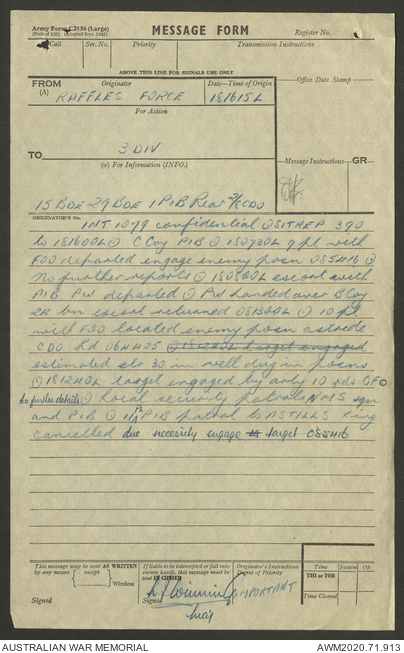 Army Form C2136 (Large)
MESSAGE FORM
Register No.
Call
Ser. No.
Priority
Transmission Instructions
ABOVE THIS LINE FOR SIGNALS USE ONLY
FROM
(A)
Originator
Date—Time of Origin
Office Date Stamp
RAFFLES FORCE
181615L
For Action
TO
3 DIV
(W) For Information (INFO.)
Message Instructions
GR
15 BDE 29 BDE 1 PIB Rear 2/6 CDO
ORIGINATOR'S No.
INT 1079 confidential ⊙ SITREP 390
to 181600L ⊙ C Coy PIB ⊙ 180730L 9 pl with
FOO departed engage enemy posn 085416 ⊙
No further reports ⊙ 180800L escort with
PIB PW departed ⊙ PW handed over B Coy
24 bn escort returned 081300L ⊙ 10 pl
with FOO located enemy posn astride
CDO Rd 064425 ⊙ 181240L target engaged
estimated str 30 in well dug in posns
⊙ 181240L target engaged by arty 10 rds GF ⊙
No further details ⊙ Local security patrols NMS sqn
and PIB ⊙ 11 Pl PIB patrol to ASTILLS
cancelled due necessity engage target 085416
This message may be sent AS WRITTEN
by any means
except
Wireless
If liable to be intercepted or fall into
enemy hands, this message must be
sent IN CIPHER
Originator's Instructions
Degree of Priority
Time
System
Op
THI or TOR
Time Cleared
IMPORTANT
Signed
Signed
Maj
AUSTRALIAN WAR MEMORIAL
AWM2020.71.913